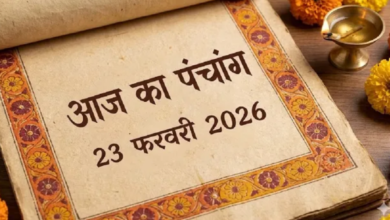 आज का पंचांग
23 फरवरी 2026